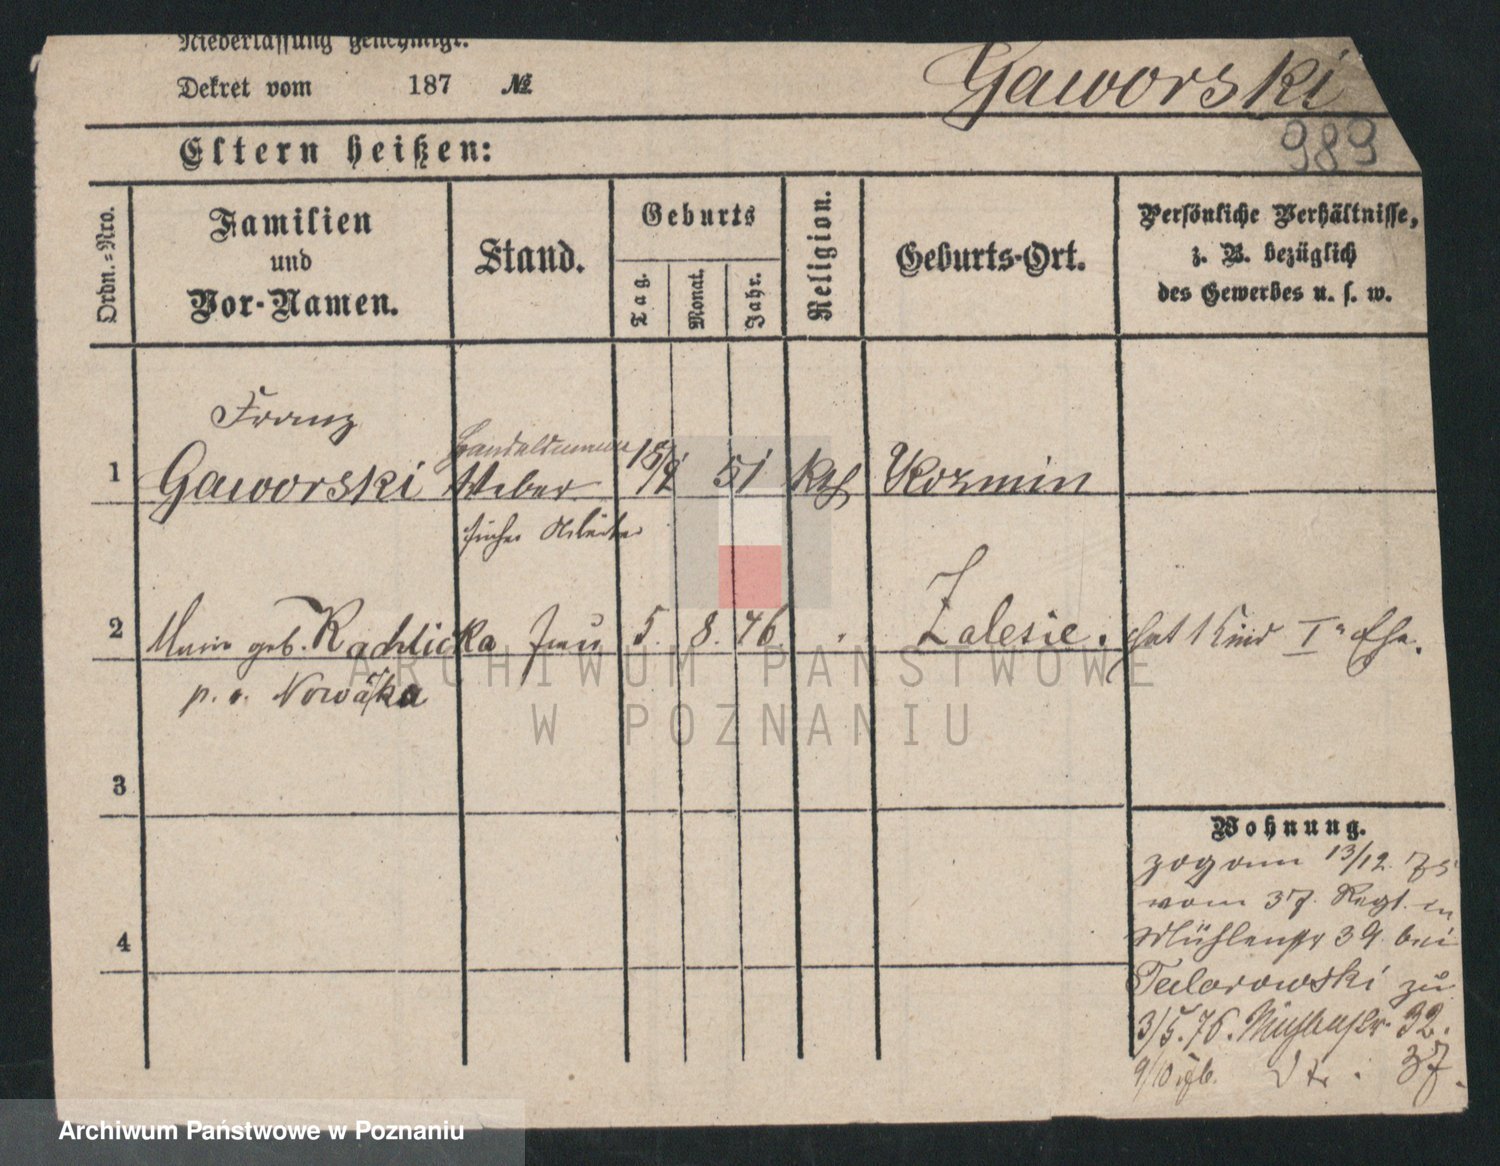 Niederlassung genehmigt.
Dekret vom 187 №
Gaworski
989
Eltern heißen:
Ordn.-Nro.
Familien
und
Vor-Namen.
Stand.
Geburts
Tag.
Monat.
Jahr.
Religion.
Geburts-Ort.
Persönliche Verhältnisse,
z. B. bezüglich
des Gewerbes u. s. w.
Franz
Handelsmann
1 Gaworski Weber 51 Kth Kozmin
früher Arbeiter
2 Marie geb. Rachlicka Frau 5. 8. 46 " Zalesie. hat 1 Kind I" Ehe.
p. v. Nowacka
3
Wohnung.
zog am 13/12 75
vom 37. Regt. in
Mühlenstr 39 bei
Talarowski zu
3/5. 76. Mühlenstr. 32.
9/10 37.
4
ARCHIWUM PAŃSTWOWE
W POZNANIU
Archiwum Państwowe w Poznaniu